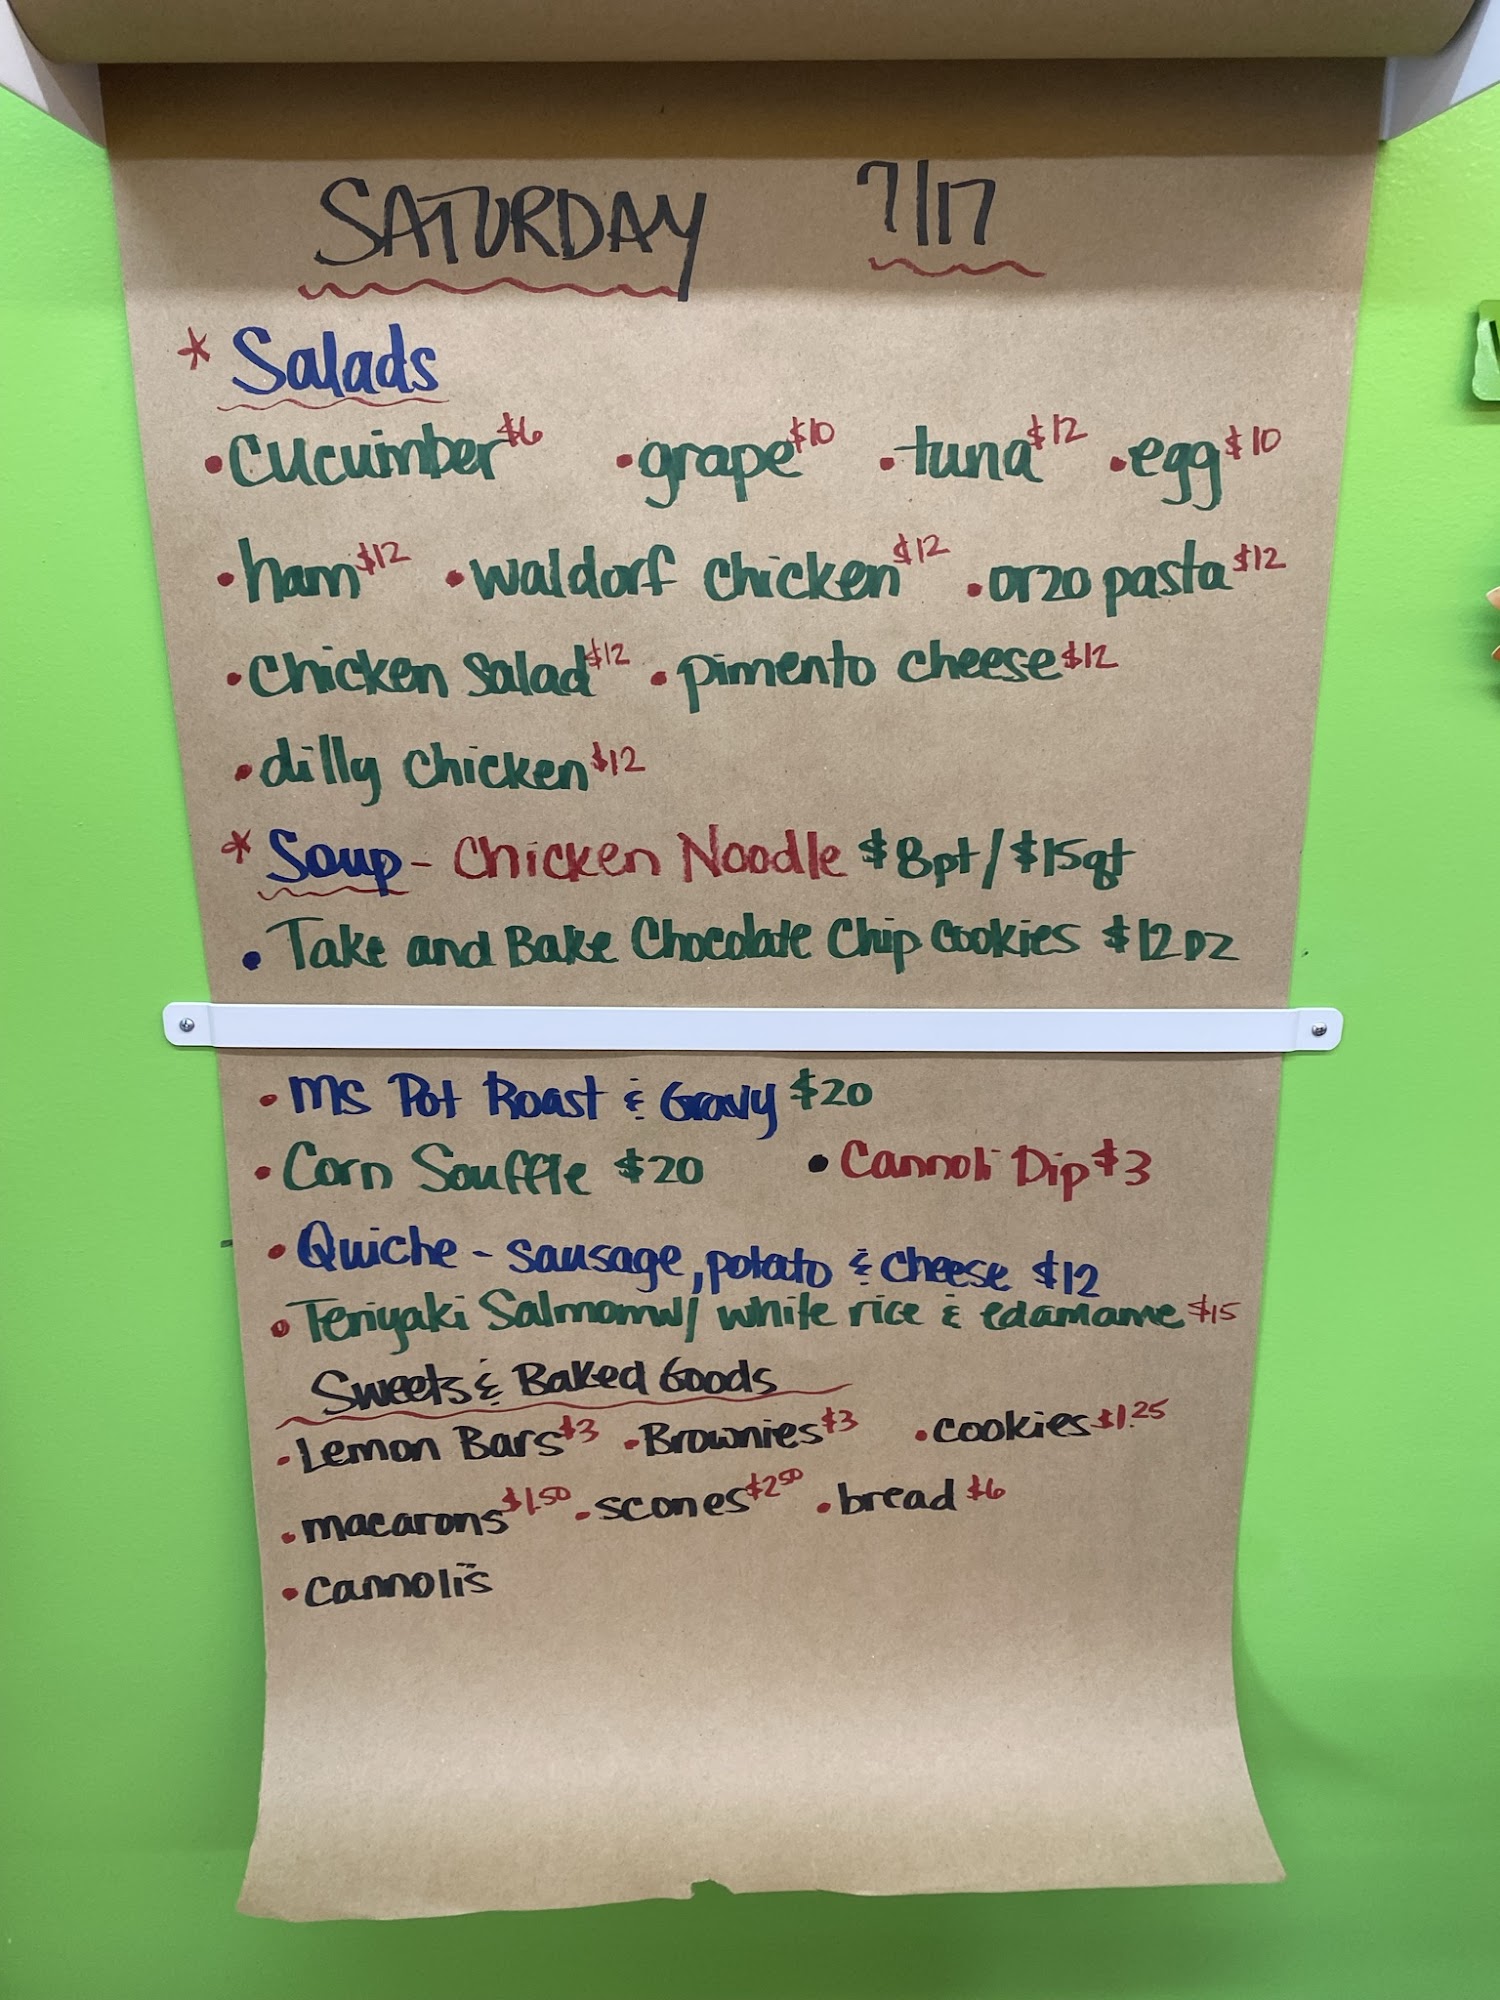 SATURDAY 7/17
* Salads
• Cucumber $6 • grape $10 • tuna $12 • egg $10
• ham $12 • waldorf chicken $12 • orzo pasta $12
• Chicken Salad $12 • pimento cheese $12
• dilly chicken $12
* Soup - Chicken Noodle $8pt/$15qt
• Take and Bake Chocolate Chip Cookies $12 DZ
• MS Pot Roast & Gravy $20
• Corn Souffle $20 • Cannoli Dip $3
• Quiche - sausage, potato & cheese $12
• Teriyaki Salmon w/ white rice & edamame $15
Sweets & Baked Goods
• Lemon Bars $3 • Brownies $3 • cookies $1.25
• macarons $1.50 • scones $2.50 • bread $6
• cannolis